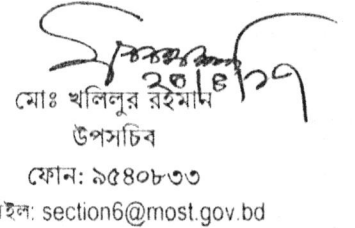 ২০/৪/১৭
মোঃ খলিলুর রহমান
উপসচিব
ফোন: ৯৫৪০৮৩৩
ইল: section6@most.gov.bd